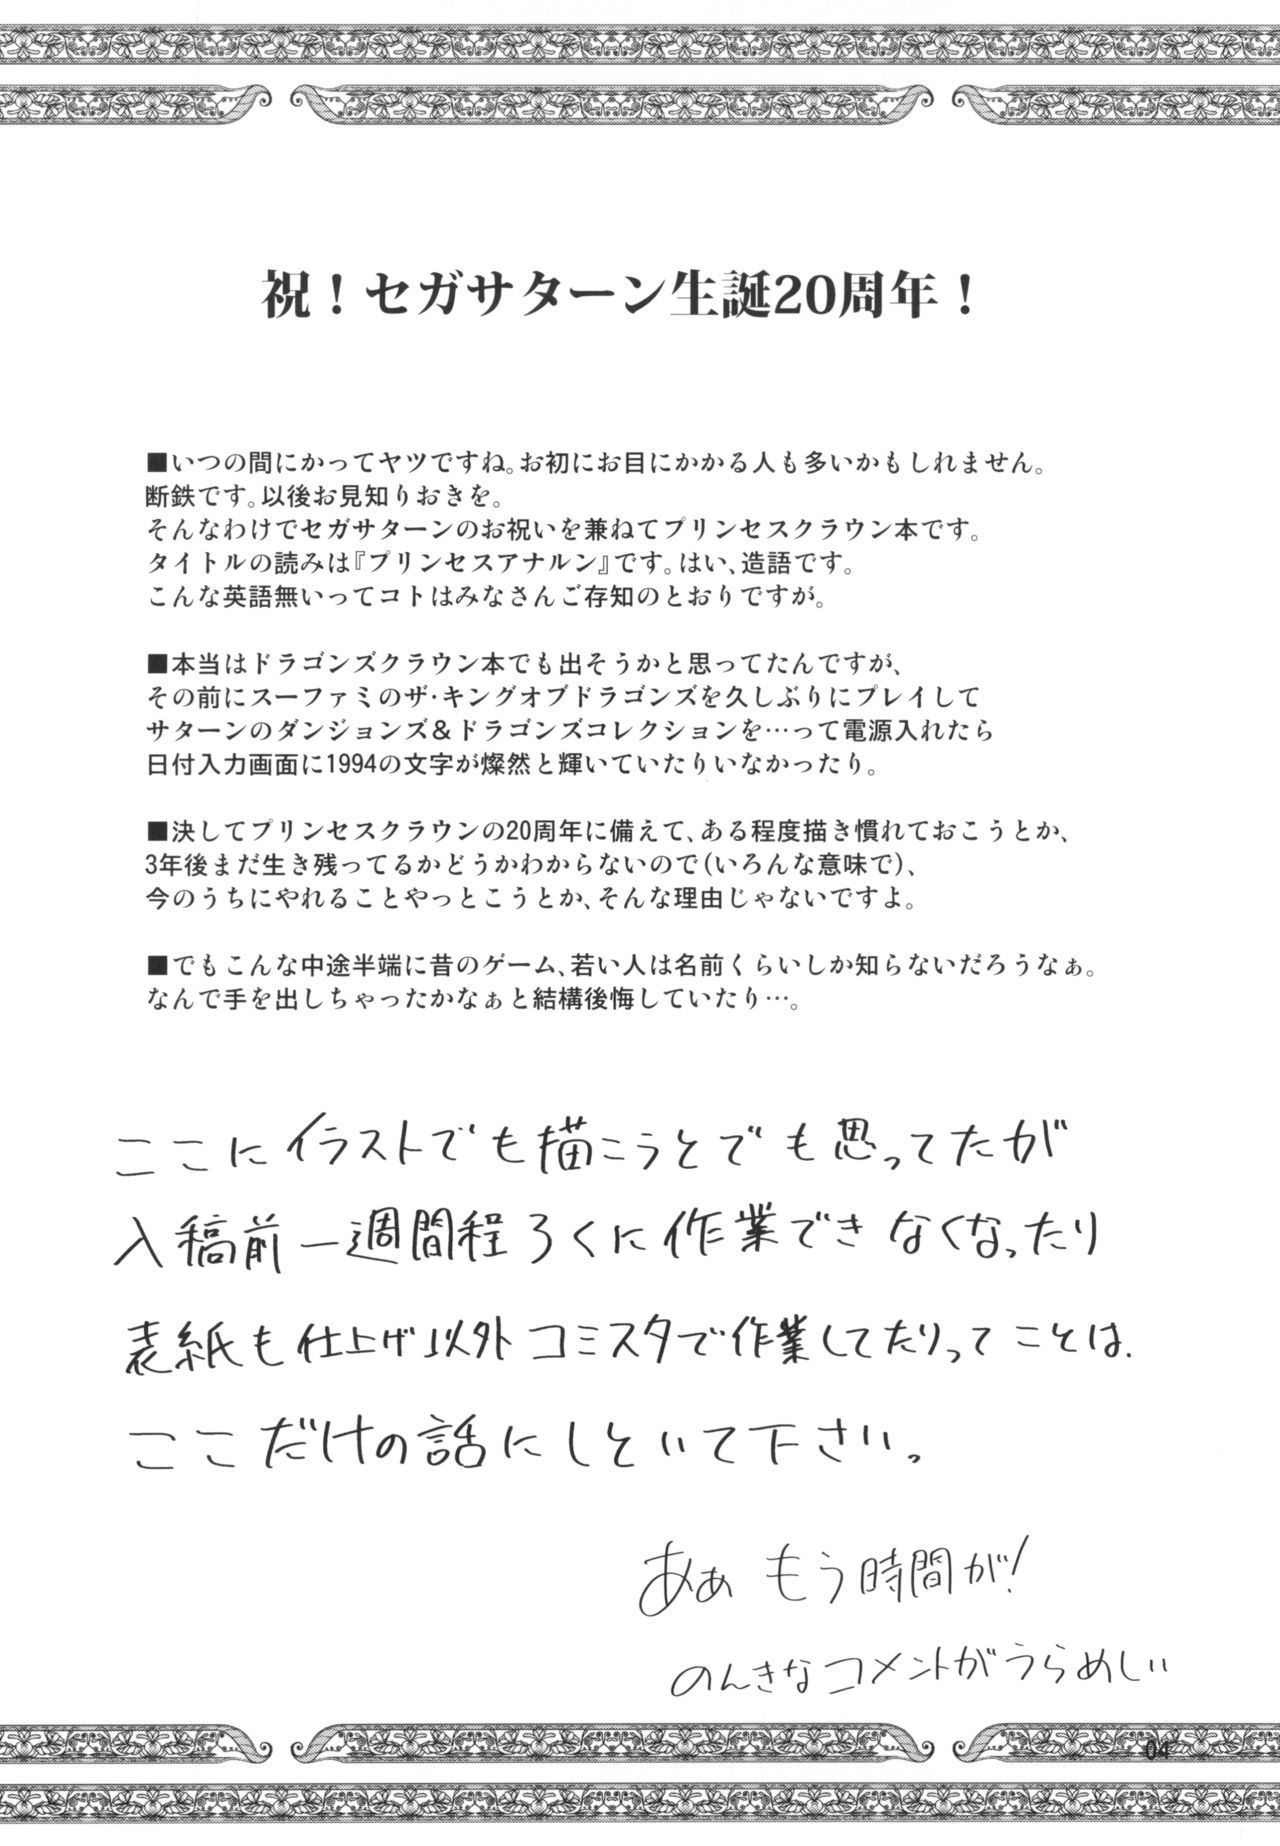 祝！セガサターン生誕20周年！
■いつの間にかってヤツですね。お初にお目にかかる人も多いかもしれません。
断鉄です。以後お見知りおきを。
そんなわけでセガサターンのお祝いを兼ねてプリンセスクラウン本です。
タイトルの読みは『プリンセスアナルン』です。はい、造語です。
こんな英語無いってコトはみなさんご存知のとおりですが。
■本当はドラゴンズクラウン本でも出そうかと思ってたんですが、
その前にスーファミのザ・キングオブドラゴンズを久しぶりにプレイして
サターンのダンジョンズ＆ドラゴンズコレクションを…って電源入れたら
日付入力画面に1994の文字が燦然と輝いていたりいなかったり。
■決してプリンセスクラウンの20周年に備えて、ある程度描き慣れておこうとか、
3年後まだ生き残ってるかどうかわからないので（いろんな意味で）、
今のうちにやれることやっとこうとか、そんな理由じゃないですよ。
■でもこんな中途半端に昔のゲーム、若い人は名前くらいしか知らないだろうなぁ。
なんで手を出しちゃったかなぁと結構後悔していたり…。
ここにイラストでも描こうとでも思ってたが
入稿前一週間程ろくに作業できなくなったり
表紙も仕上げ以外コミスタで作業してたりってことは、
ここだけの話にしといて下さい。
あぁ もう時間が！
のんきなコメントがうらめしい
04